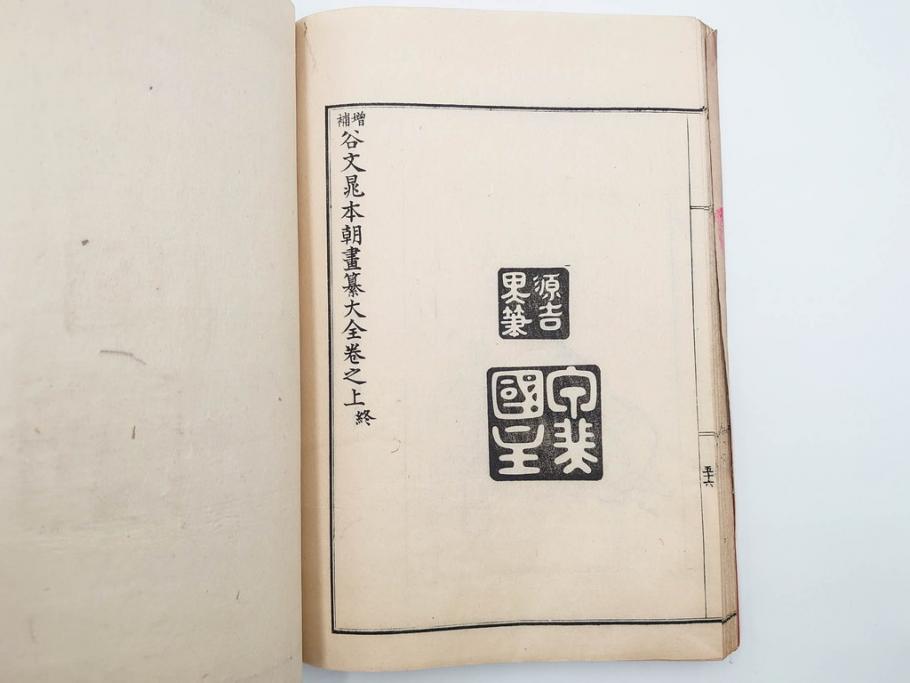 五十六
源吉
筆
國主
增補
谷文晁本朝畫纂大全卷之上
終